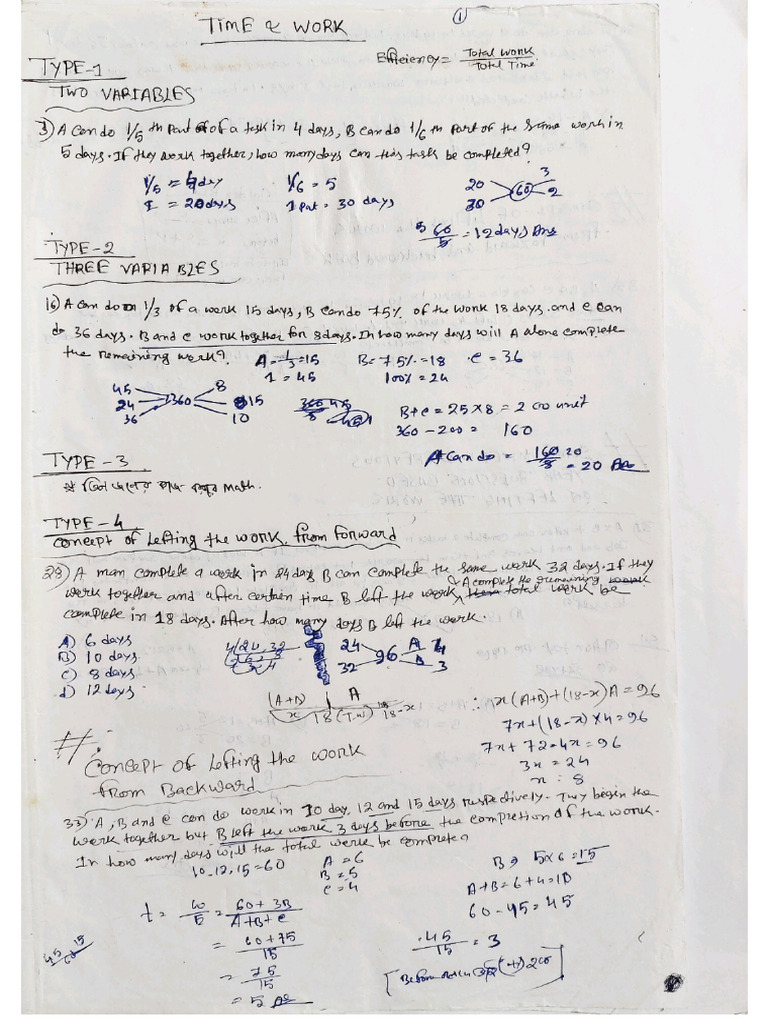 ①
TIME & WORK
Efficiency = Total Work / Total Time
TYPE-1
TWO VARIABLES
3) A can do 1/5 th part of a task in 4 days, B can do 1/6 th part of the same work in
5 days. If they work together, how many days can this task be completed?
1/5 = 4 day
1 = 20 days
1/6 = 5
1 part = 30 days
20 30 60 3 2
60/5 = 12 days Ans
TYPE-2
THREE VARIABLES
16) A can do 1/3 of a work 15 days, B can do 75% of the work 18 days. and C can
do 36 days. B and C work together for 8 days. In how many days will A alone complete
the remaining work?
A = 1/3 = 15
1 = 45
B = 75% = 18
100% = 24
C = 36
45 24 36 360 8 15 10
B+C = 25×8 = 200 unit
360 - 200 = 160
A can do = 160/8 20 = 20 Ans
TYPE-3
Math.
TYPE-4
Concept of Lefting the work from Forward
28) A man complete a work in 24 day B can complete the same work 32 days. If they
work together and after certain time B left the work A complete the remaining total work be
complete in 18 days. After how many days B left the work.
A) 6 days
B) 10 days
C) 8 days
d) 12 days
24 32 96 A 4 B 3
(A+B) A
x 18 (T.W) 18-x
∴ x(A+B)+(18-x)A = 96
7x+(18-x)×4 = 96
7x+72-4x = 96
3x = 24
x = 8
# Concept of Lefting the work
from Backward
33) A, B and C can do work in 10 day, 12 and 15 days respectively. They begin the
work together but B left the work 3 days before the completion of the work.
In how many days will the total work be complete?
10, 12, 15 = 60
A = 6
B = 5
C = 4
B → 5×6 = 15
A+B = 6+4 = 10
60 - 45 = 45
45/15 = 3
t = 60+3B / A+B+C
= 60+75 / 15
= 75/15
= 5 Ans